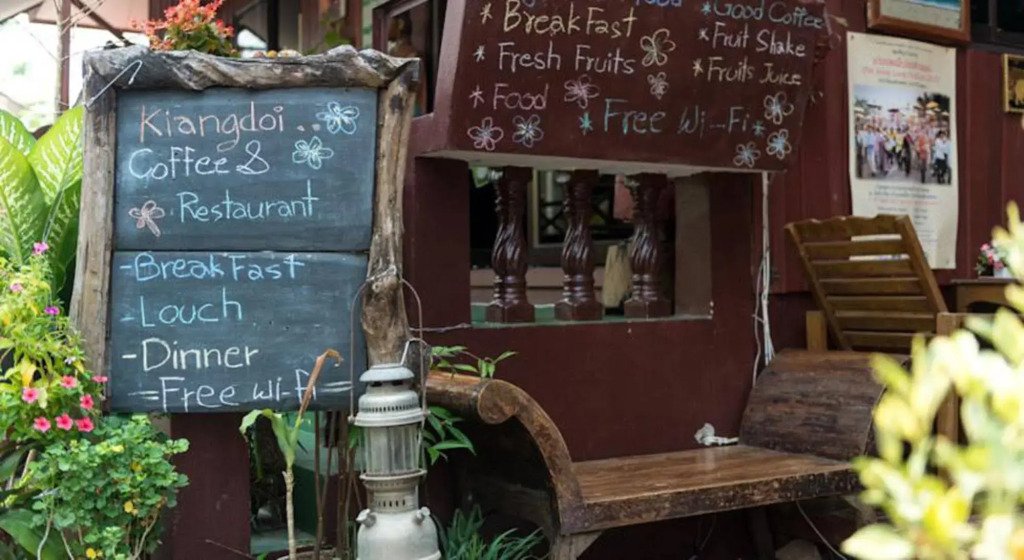 Kiangdoi ..
Coffee &
Restaurant
-BreakFast
-Louch
-Dinner
=Free wi-fi=
* BreakFast
* Fresh Fruits
* Food
* Good Coffee
* Fruit Shake
* Fruits Juice
* Free Wi--Fi *